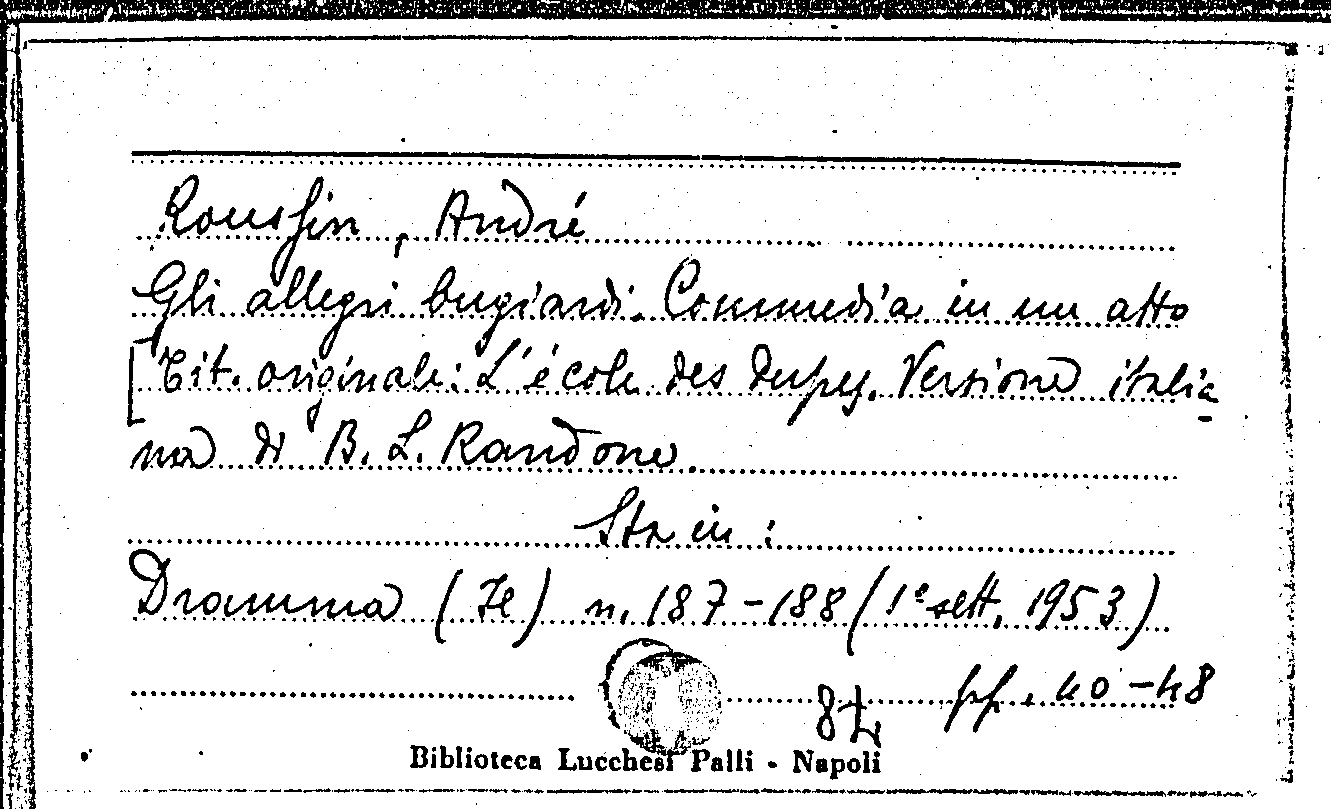 Roussin, André
Gli allegri bugiardi. Commedia in un atto
[Tit. originale: L'école des dupes. Versione italia-
na di B. L. Randone.
Sta in:
Dramma (Il) n. 187-188 (1° sett. 1953)
pp. 40-48
Biblioteca Lucchesi Palli - Napoli